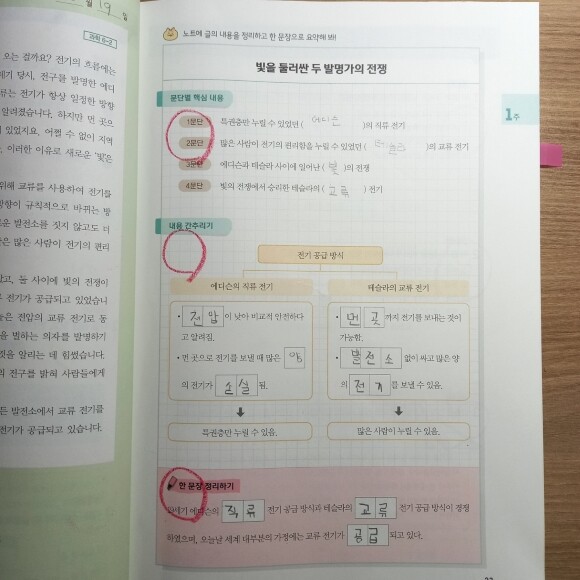 월 19 일
과학 6-2
오는 걸까요? 전기의 흐름에는
당시, 전구를 발명한 에디
류는 전기가 항상 일정한 방향
알려졌습니다. 하지만 먼 곳으
있었지요. 어쩔 수 없이 지역
이러한 이유로 새로운 '빛'은
위해 교류를 사용하여 전기를
방향이 규칙적으로 바뀌는 방
운 발전소를 짓지 않고도 더
많은 사람이 전기의 편리
둘 사이에 빛의 전쟁이
전기가 공급되고 있었습니
높은 전압의 교류 전기로 동
을 벌하는 의자를 발명하기
것을 알리는 데 힘썼습니다.
의 전구를 밝혀 사람들에게
든 발전소에서 교류 전기를
전기가 공급되고 있습니다.
노트에 글의 내용을 정리하고 한 문장으로 요약해 봐!
빛을 둘러싼 두 발명가의 전쟁
1주
문단별 핵심 내용
1문단 특권층만 누릴 수 있었던 ( 에디슨 )의 직류 전기
2문단 많은 사람이 전기의 편리함을 누릴 수 있었던 ( 테슬라 )의 교류 전기
3문단 에디슨과 테슬라 사이에 일어난 ( 빛 )의 전쟁
4문단 빛의 전쟁에서 승리한 테슬라의 ( 교류 ) 전기
내용 간추리기
전기 공급 방식
에디슨의 직류 전기
• 전압 이 낮아 비교적 안전하다
고 알려짐.
• 먼 곳으로 전기를 보낼 때 많은 양
의 전기가 손실 됨.
특권층만 누릴 수 있음.
테슬라의 교류 전기
• 먼 곳 까지 전기를 보내는 것이
가능함.
• 발전소 없이 싸고 많은 양
의 전기 를 보낼 수 있음.
많은 사람이 누릴 수 있음.
한 문장 정리하기
19세기 에디슨의 직류 전기 공급 방식과 테슬라의 교류 전기 공급 방식이 경쟁
하였으며, 오늘날 세계 대부분의 가정에는 교류 전기가 공급 되고 있다.